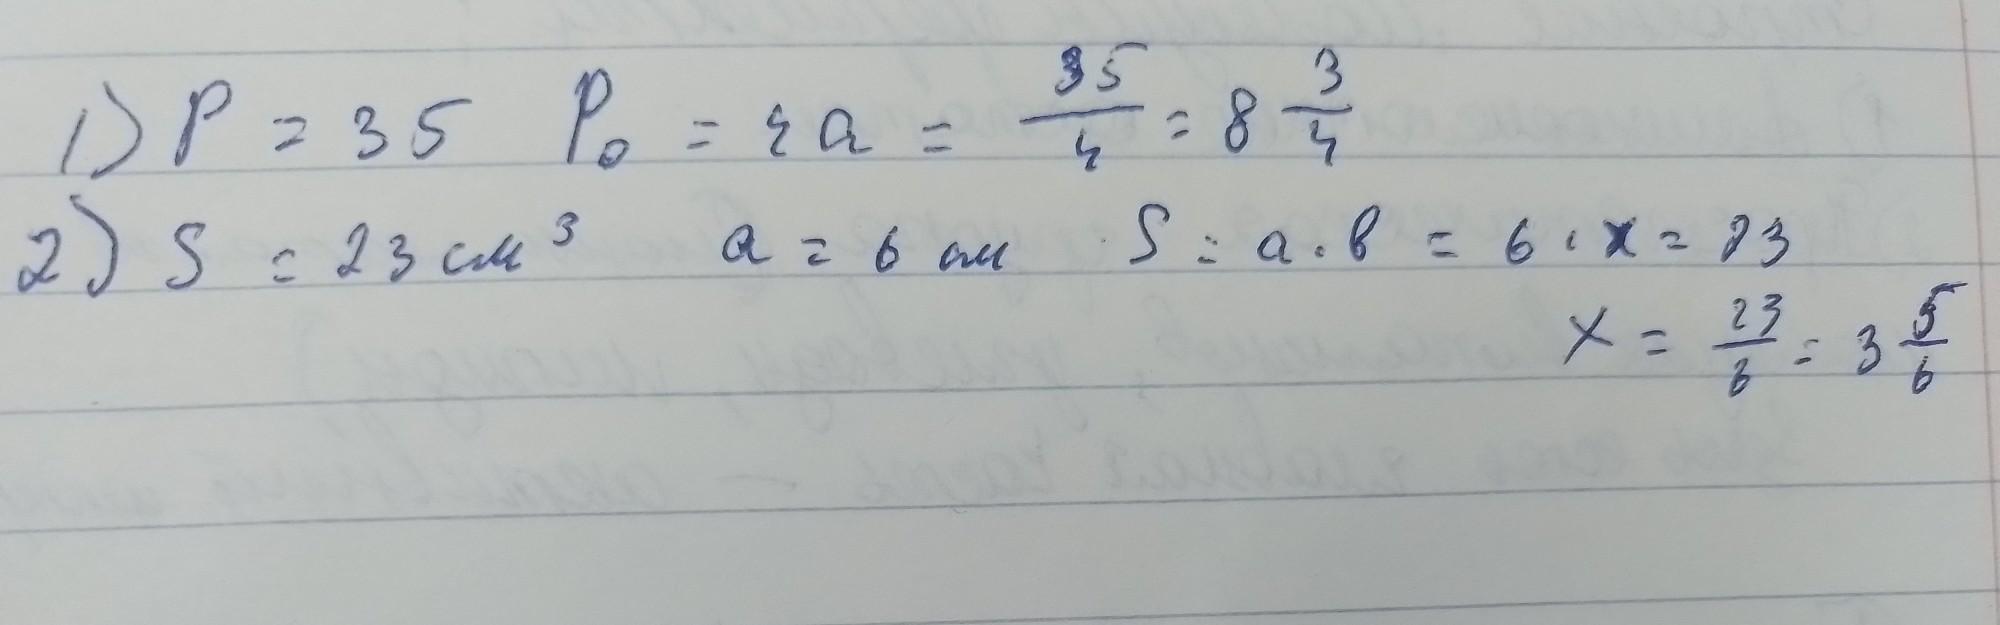 1) P = 35 P₀ = 4a = 35/4 = 8 3/4
2) S = 23 см³ a = 6 см S = a · b = 6 · x = 23
x = 23/6 = 3 5/6